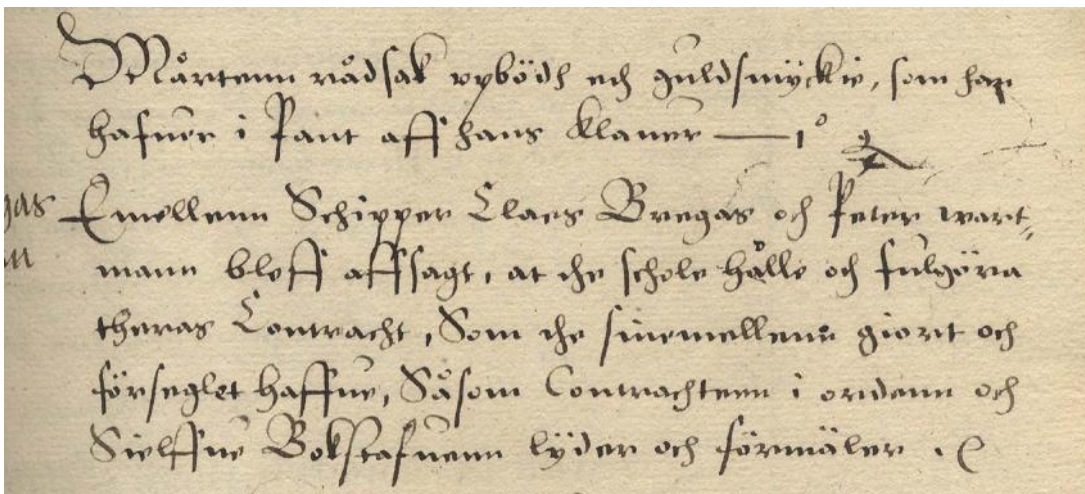 Mårtenn rådsak vpbödh ett guldsmyckie, som han
hafuer i Pant aff hans Klauer — 1°
Emellenn Schipper Claes Bregas och Peter wart=
mann bleff affsagt, at the schole hålle och fulgöra
theras Contracht, Som the sinemellenn giort och
förseglet haffue, Såsom Contrachtenn i ordenn och
Sielffue Bokstafuenn lÿder och förmäler